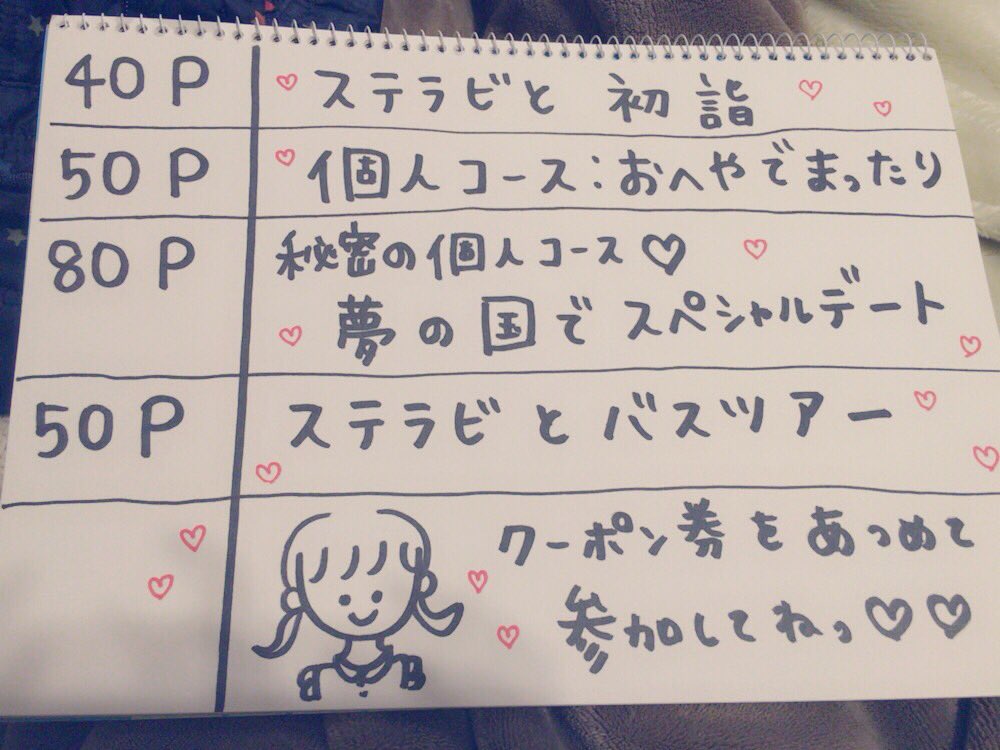 40 P ♡ ステラビと 初詣 ♡ ♡
50 P ♡ 個人コース:おへやでまったり
80 P 秘密の個人コース♡ ♡
♡ 夢の国でスペシャルデート ♡
50 P ステラビとバスツアー ♡
クーポン券をあつめて
参加してねっ♡♡